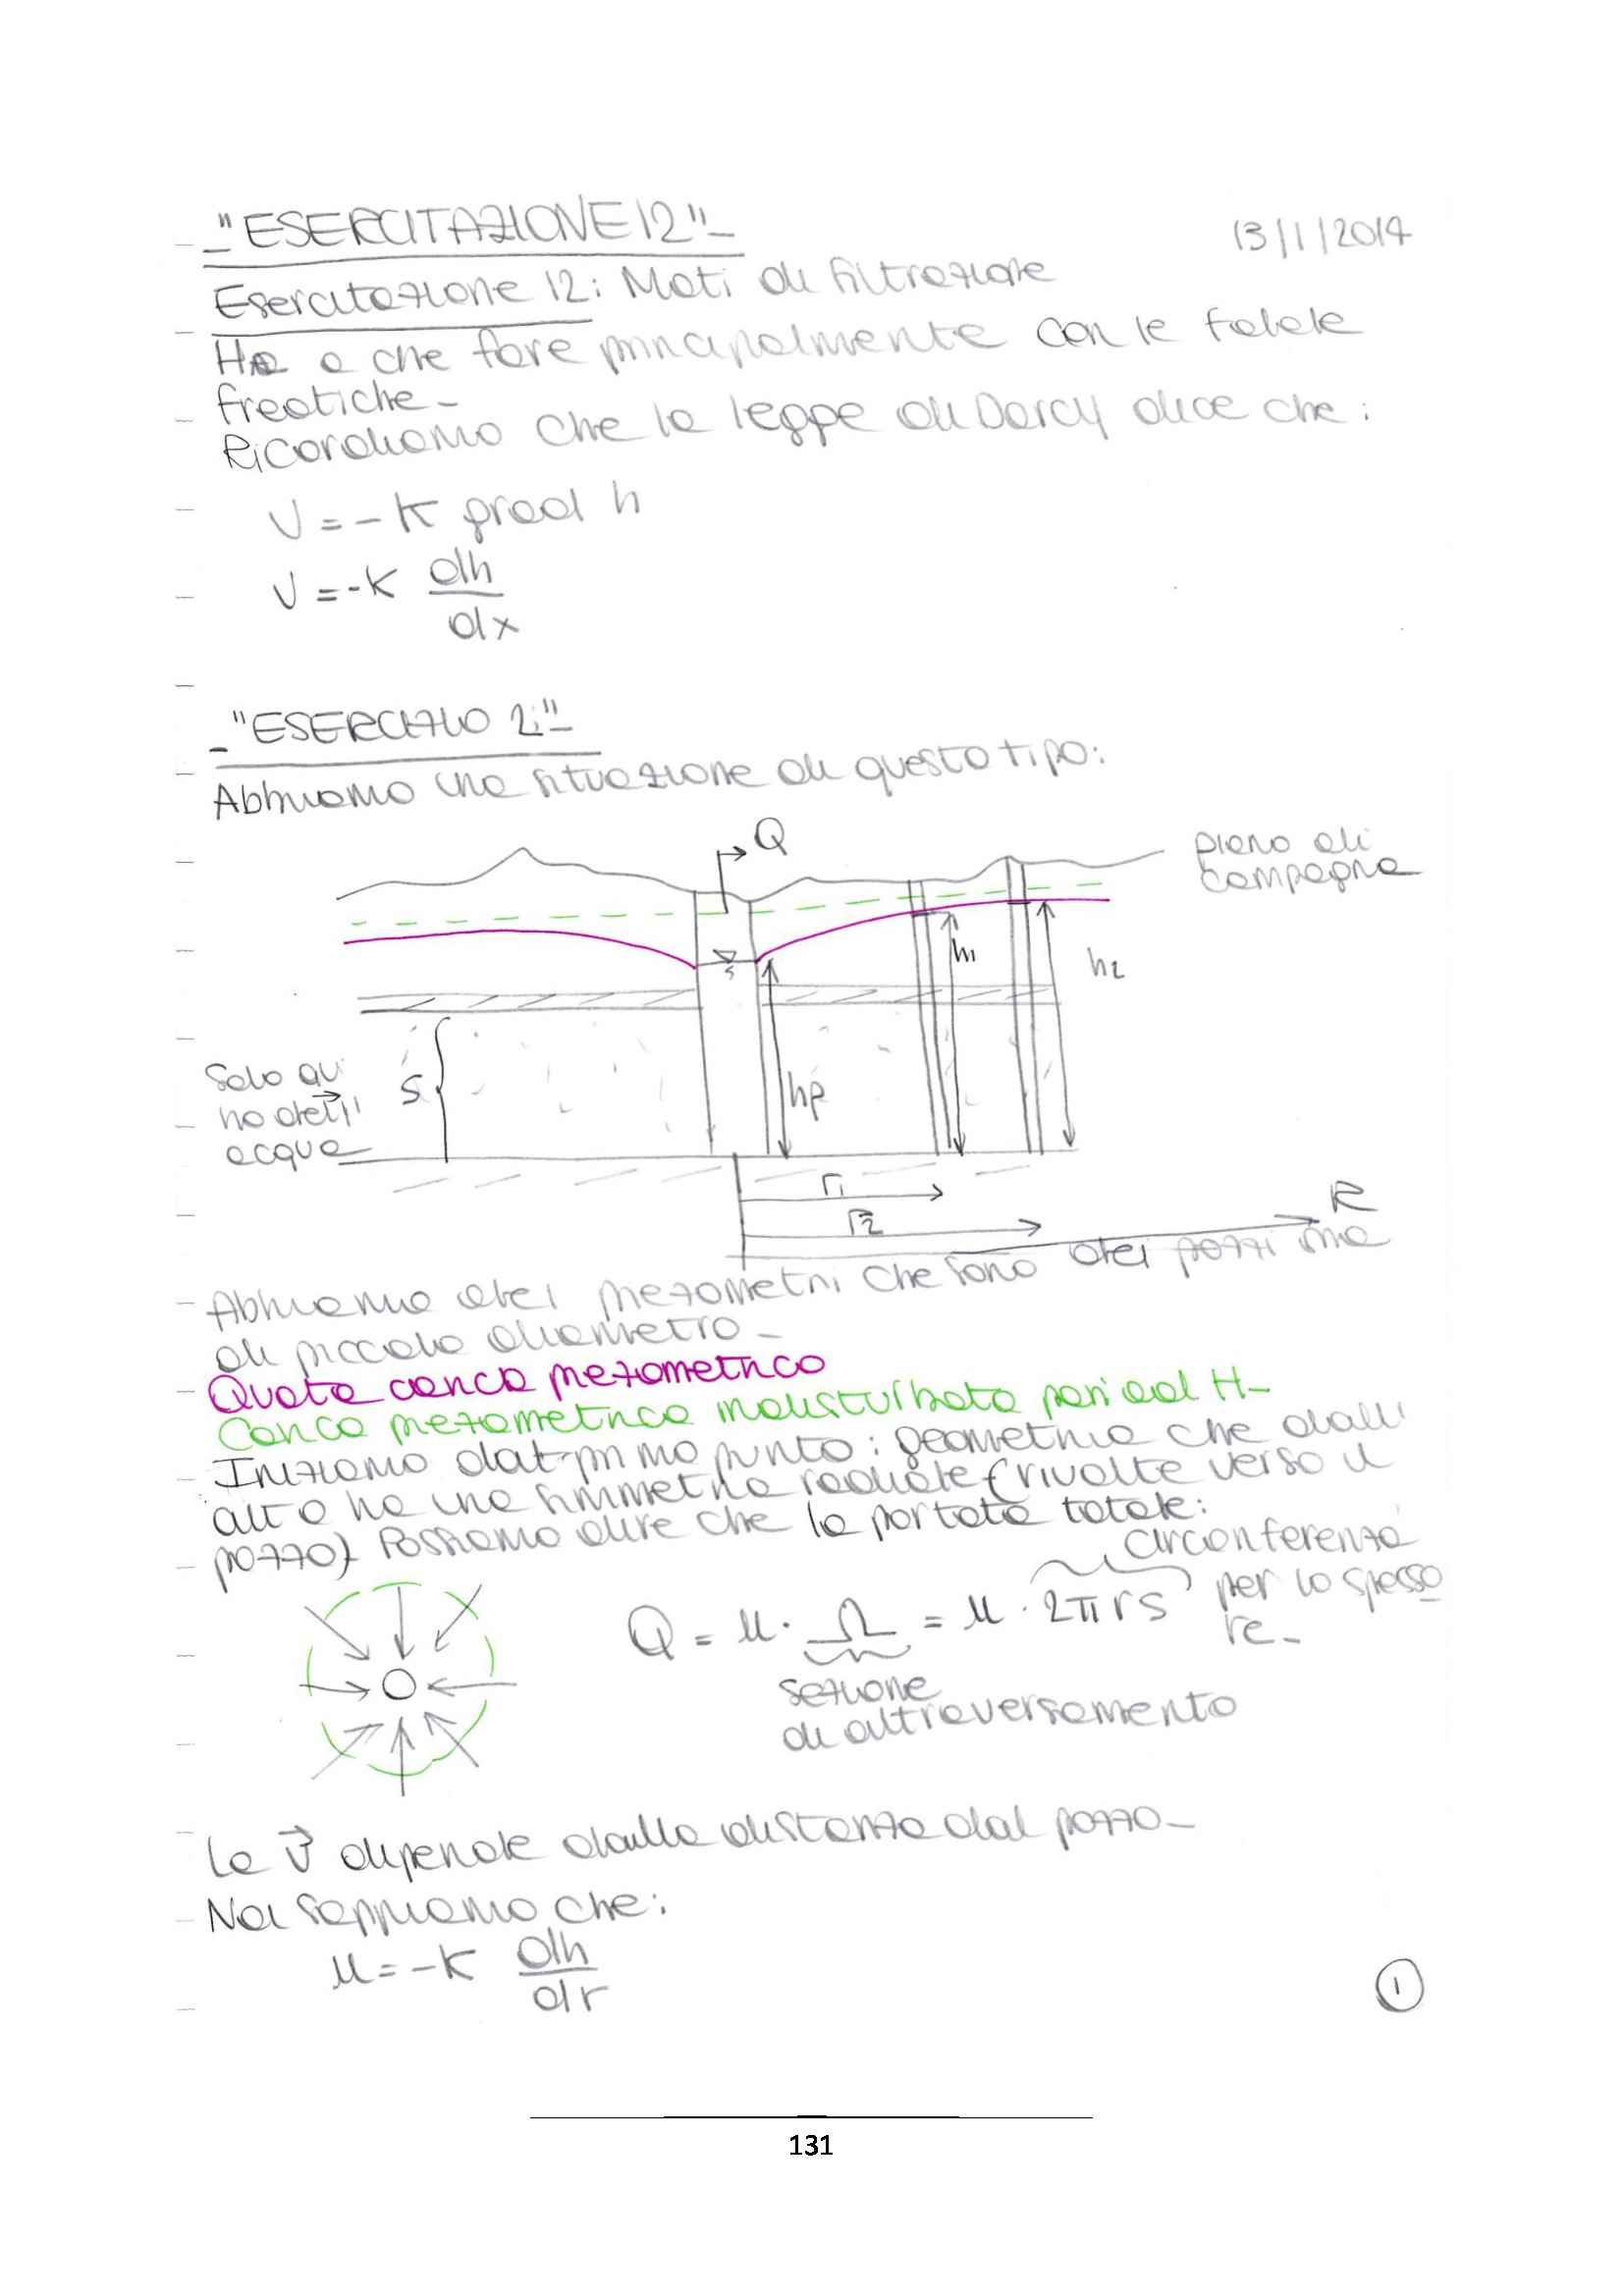 "ESERCITAZIONE 12"
13/1/2014
Esercitazione 12: Moti di filtrazione
Ha a che fare principalmente con le falde
freatiche-
Ricordiamo che la legge di Darcy dice che:
V = -K grad h
V = -K dh/dx
"ESERCIZIO 2:"
Abbiamo una situazione di questo tipo:
Q
piano di
campagna
h1
h2
Solo qui
ho dell'
acqua
S
hp
r1
r2
R
Abbiamo dei piezometri che sono dei pozzi ma
di piccolo diametro-
Quota carico piezometrico
Carico piezometrico indisturbato pari ad H-
Iniziamo dal primo punto: geometria che dall'
alto ha una simmetria radiale (rivolte verso il
pozzo) Possiamo dire che la portata totale:
circonferenza
per lo spesso
re-
Q = u · Ω = u · 2πrs
sezione
di attraversamento
La V⃗ dipende dalla distanza dal pozzo-
Noi sappiamo che:
u = -K dh/dr
1
131